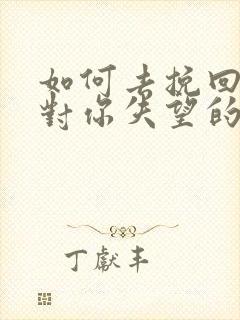 如何去挽回
對你失望的
丁獻丰